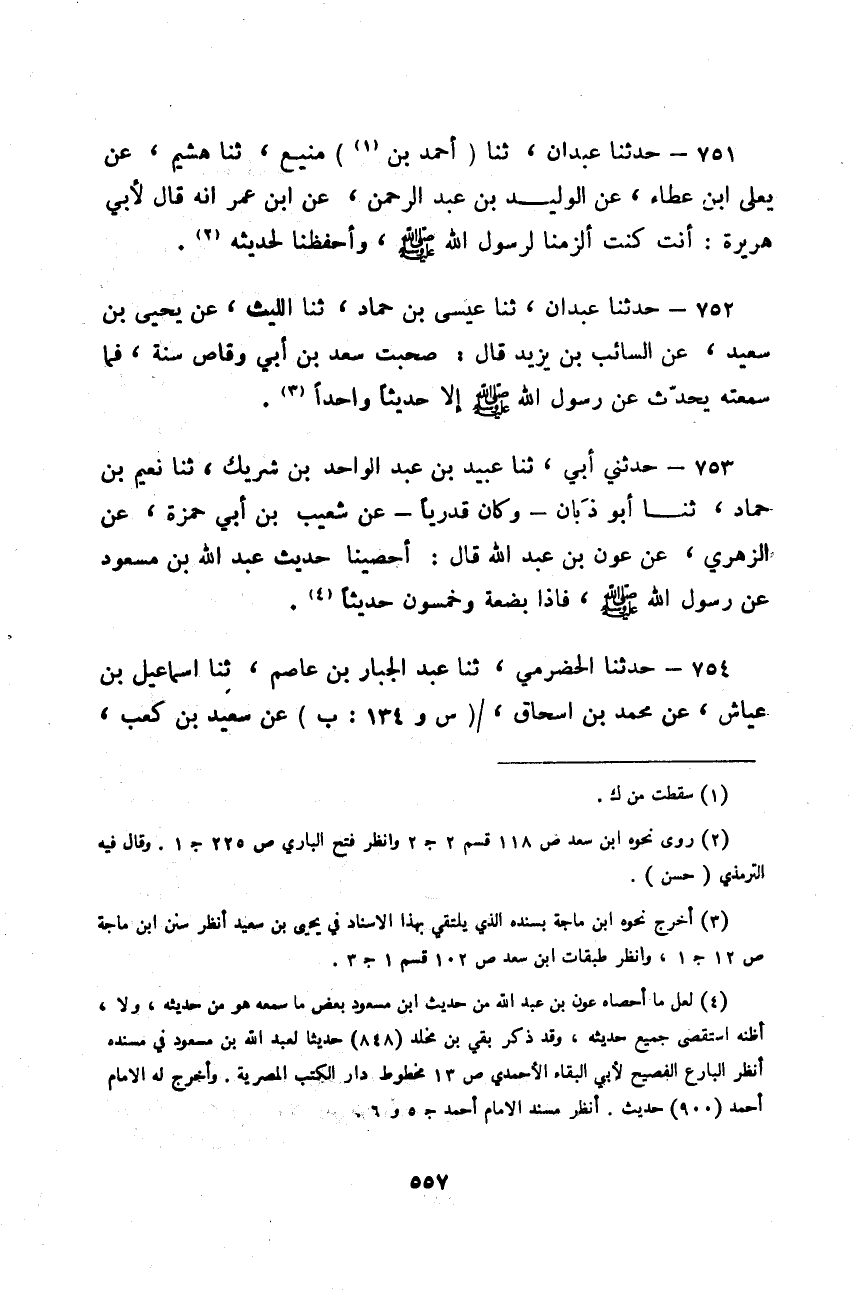 ٧٥١ – حدثنا عبدان ، ثنا ( أحمد بن (١) ) منيـع ، ثنا هشيم ، عن
يعلى ابن عطاء ، عن الوليـــد بن عبد الرحمن ، عن ابن عمر انه قال لأبي
هريرة : أنت كنت ألزمنا لرسول الله ﷺ ، وأحفظنا لحديثه (٢) .
٧٥٢ – حدثنا عبدان ، ثنا عيسى بن حماد ، ثنا الليث ، عن يحيى بن
سعيد ، عن السائب بن يزيد قال : صحبت سعد بن أبي وقاص سنة ، فما
سمعته يحدّث عن رسول الله ﷺ إلا حديثاً واحداً (٣) .
٧٥٣ – حدثني أبي ، ثنا عبيد بن عبد الواحد بن شريك ، ثنا نعيم بن
حماد ، ثنـــا أبو ذَبان – وكان قدرياً – عن شعيب بن أبي حمزة ، عن
الزهري ، عن عون بن عبد الله قال : أحصينا حديث عبد الله بن مسعود
عن رسول الله ﷺ ، فاذا بضعة وخمسون حديثاً (٤) .
٧٥٤ – حدثنا الحضرمي ، ثنا عبد الجبار بن عاصم ، ثنا اسماعيل بن
عياش ، عن محمد بن اسحاق ، /( س و ١٣٤ : ب ) عن سعيد بن كعب ،
(١) سقطت من ك .
(٢) روى نحوه ابن سعد ص ١١٨ قسم ٢ جـ ٢ وانظر فتح الباري ص ٢٢٥ جـ ١ . وقال فيه
الترمذي ( حسن ) .
(٣) أخرج نحوه ابن ماجة بسنده الذي يلتقي بهذا الاسناد في يحيى بن سعيد أنظر سنن ابن ماجة
ص ١٢ جـ ١ ، وانظر طبقات ابن سعد ص ١٠٢ قسم ١ جـ ٣ .
(٤) لعل ما أحصاه عون بن عبد الله من حديث ابن مسعود بعض ما سمعه هو من حديثه ، ولا ،
أظنه استقصى جميع حديثه ، وقد ذكر بقي بن مخلد (٨٤٨) حديثا لعبد الله بن مسعود في مسنده
أنظر البارع الفصيح لأبي البقاء الأحمدي ص ١٣ مخطوط دار الكتب المصرية . وأخرج له الامام
أحمد (٩٠٠) حديث . أنظر مسند الامام أحمد جـ ٥ و ٦ .
٥٥٧